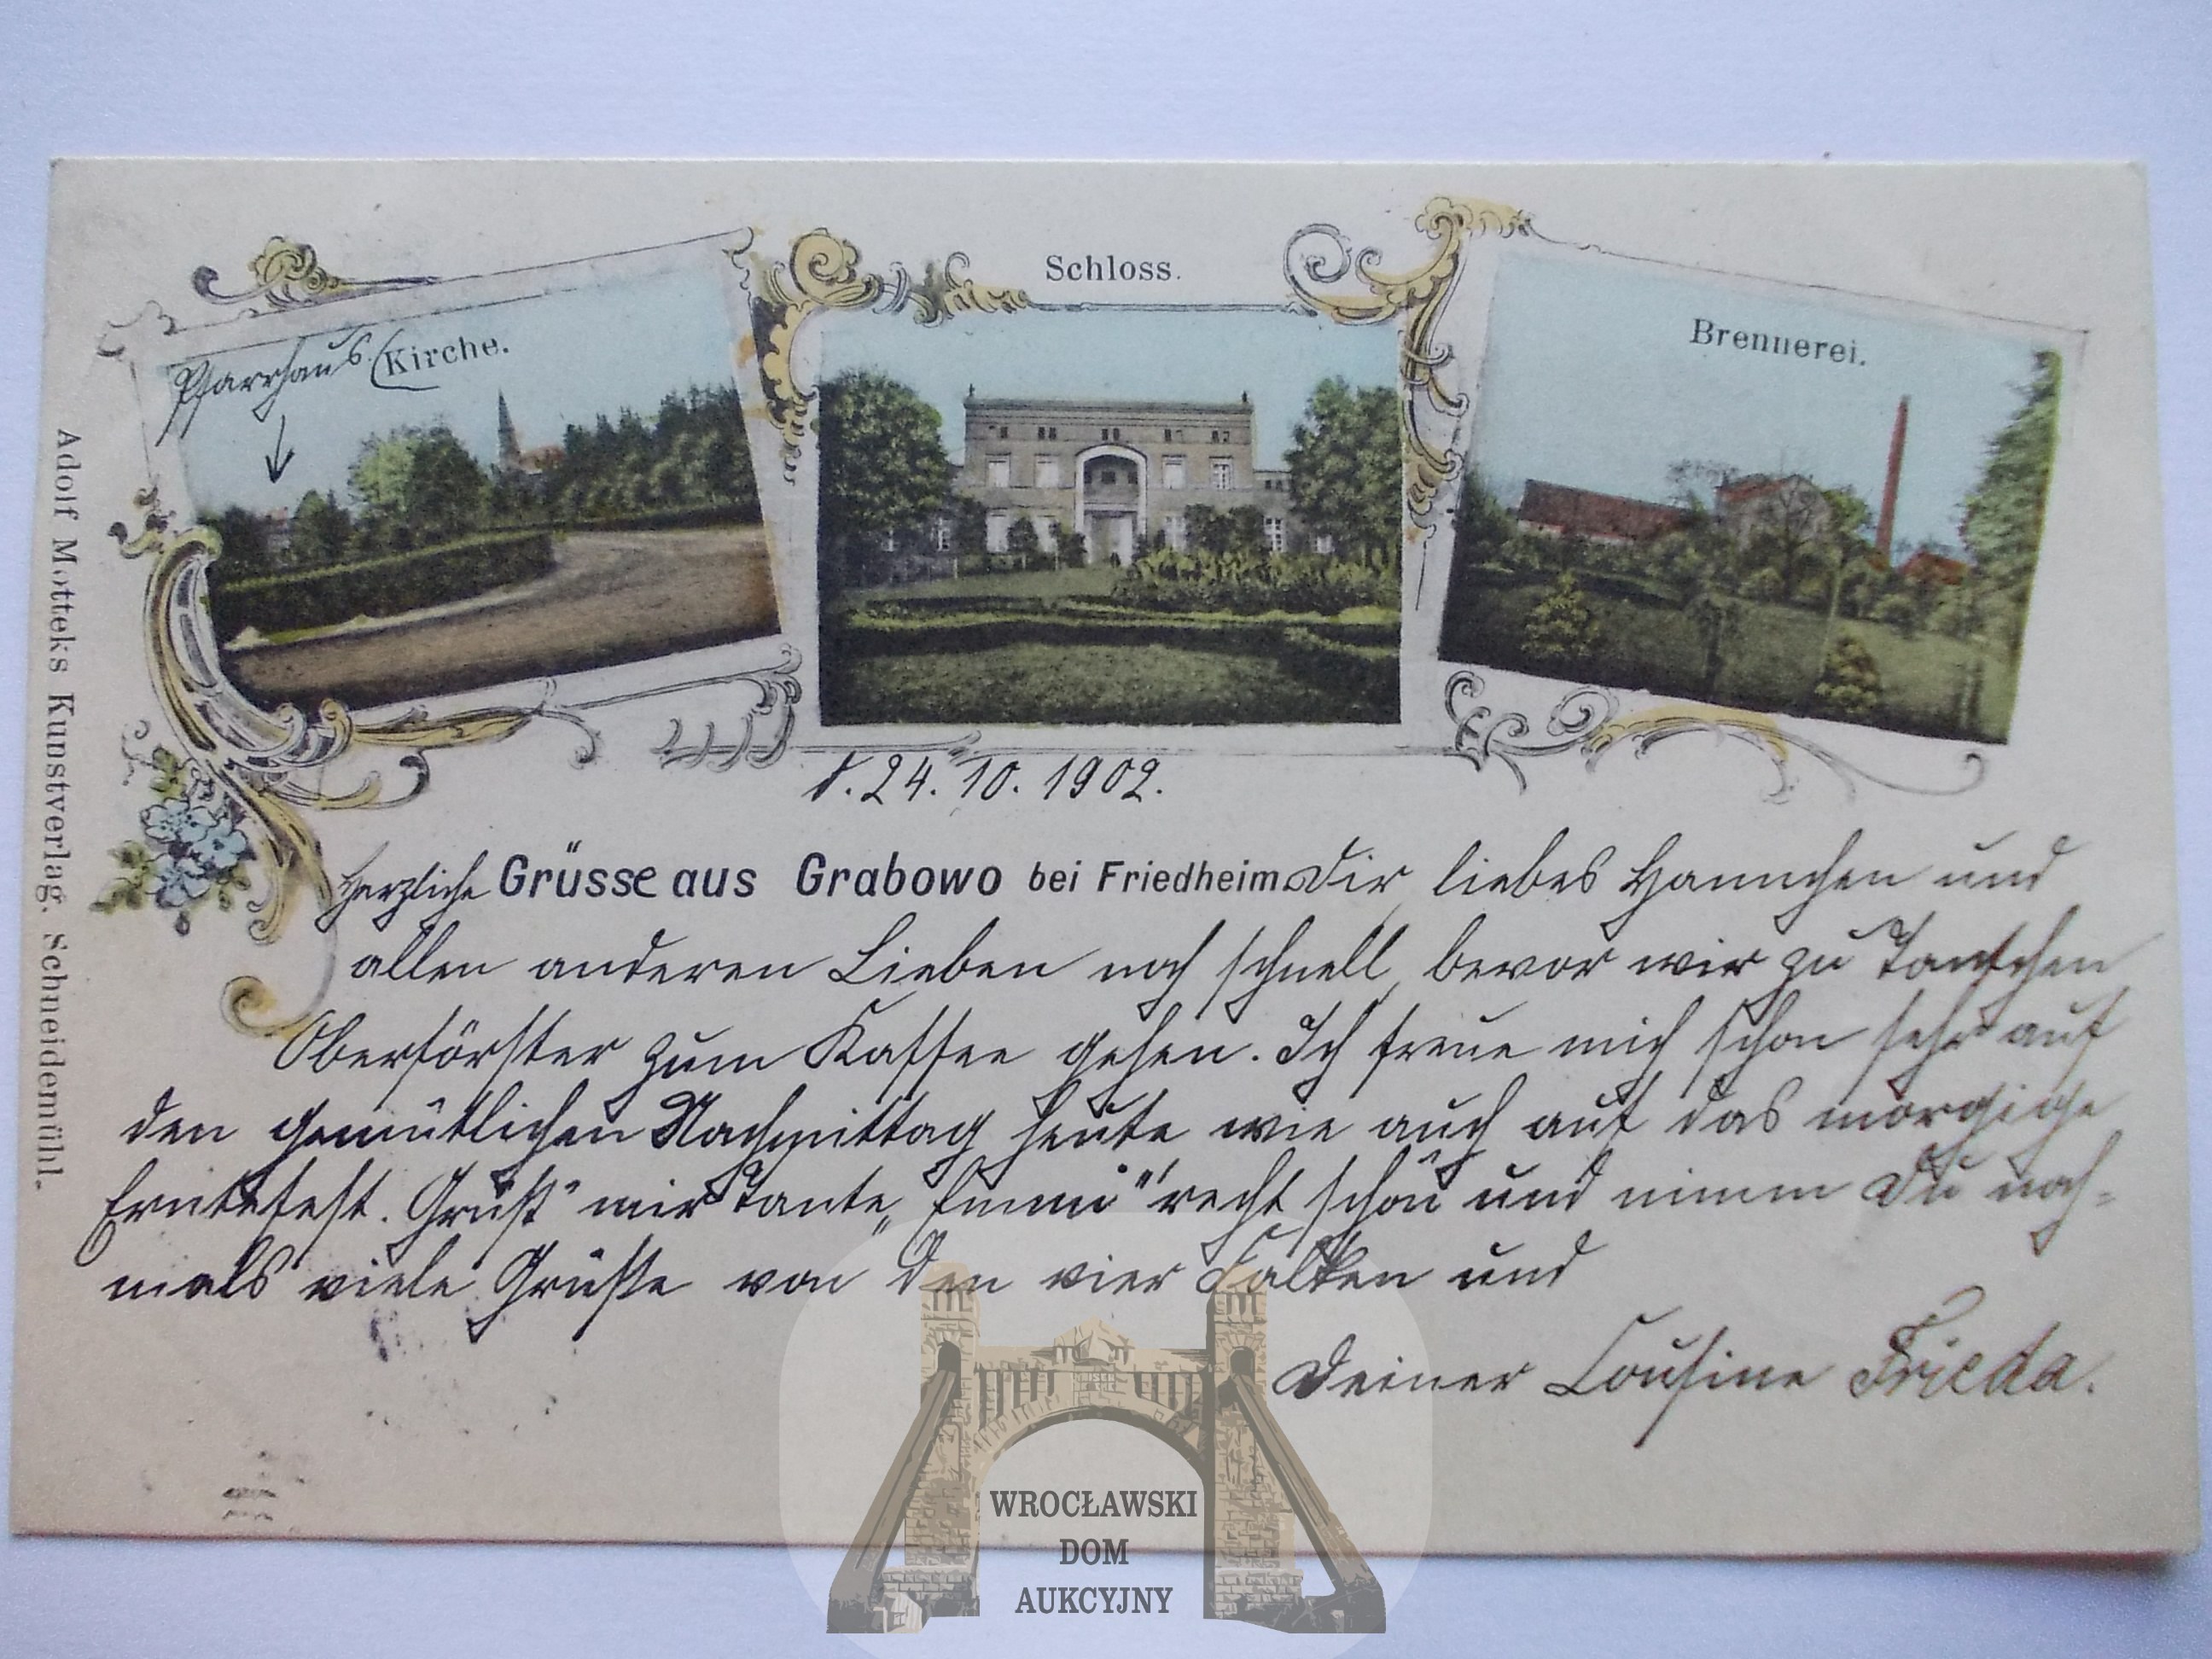 Schloss.
Pfarrhaus. Kirche.
Brennerei.
d. 24. 10. 1902.
Herzliche Grüsse aus Grabowo bei Friedheim Dir, liebes Hannchen und
allen anderen Lieben noch schnell, bevor wir zu Tantchen
Oberförster zum Kaffee gehen. Ich freue mich schon sehr auf
den gemütlichen Nachmittag heute wie auch auf das morgige
Erntefest. Grüß mir Tante „Emmi“ recht schön und nimm Du noch-
mals viele Grüße von den vier Falken und
Deiner Cousine Frieda.
Adolf Motteks Kunstverlag. Schneidemühl.
WROCŁAWSKI
DOM
AUKCYJNY